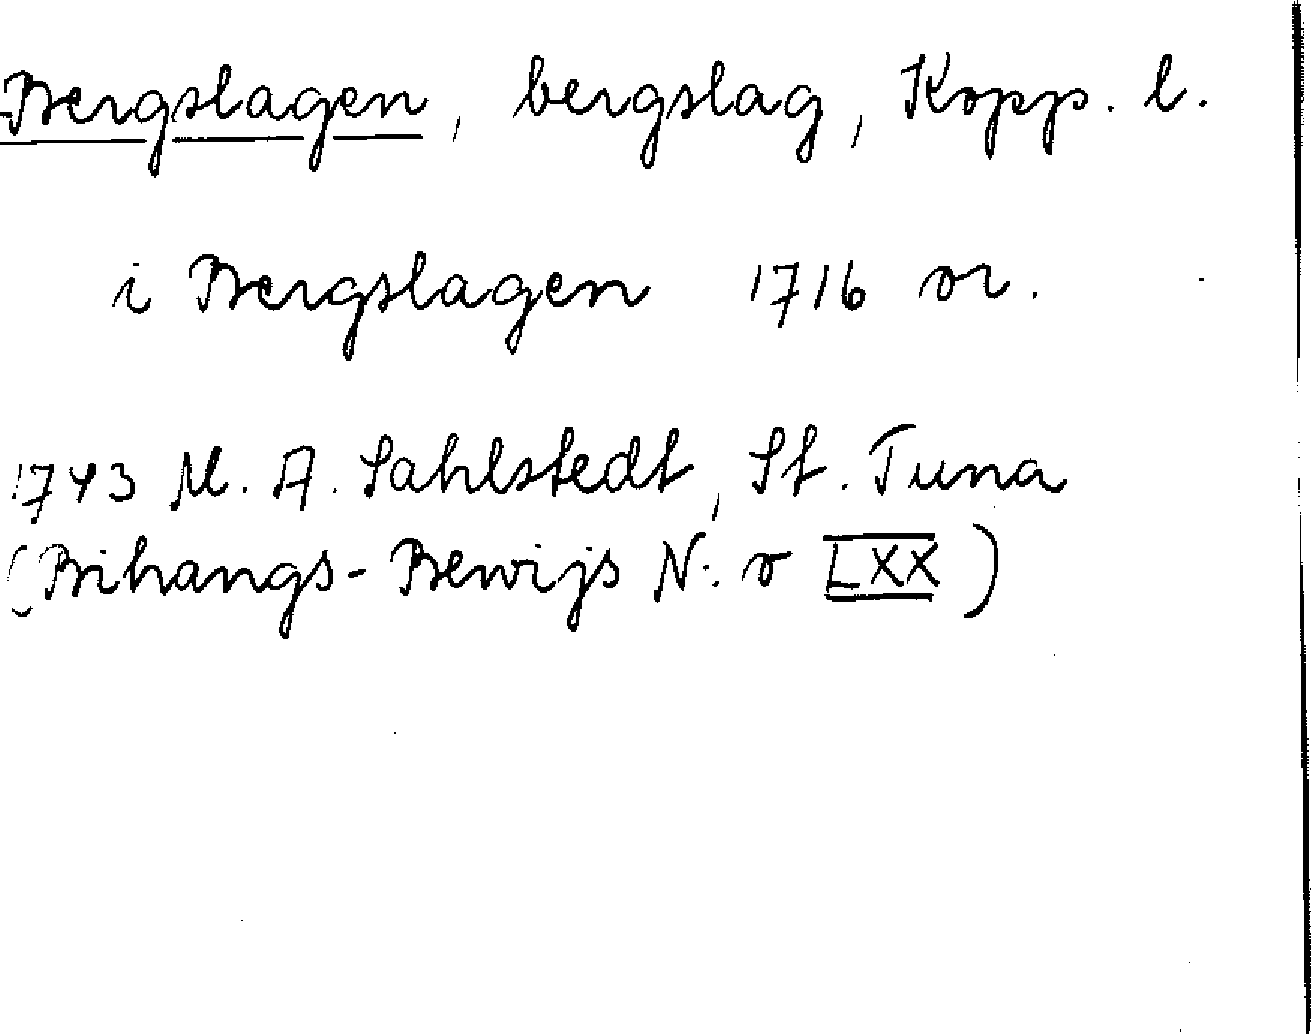 Bergslagen, bergslag, Kopp. l.
i Bergslagen 1716 or.
1743 M. A. Sahlstedt, St. Tuna
(Bihangs-Bewijs N:o LXX)